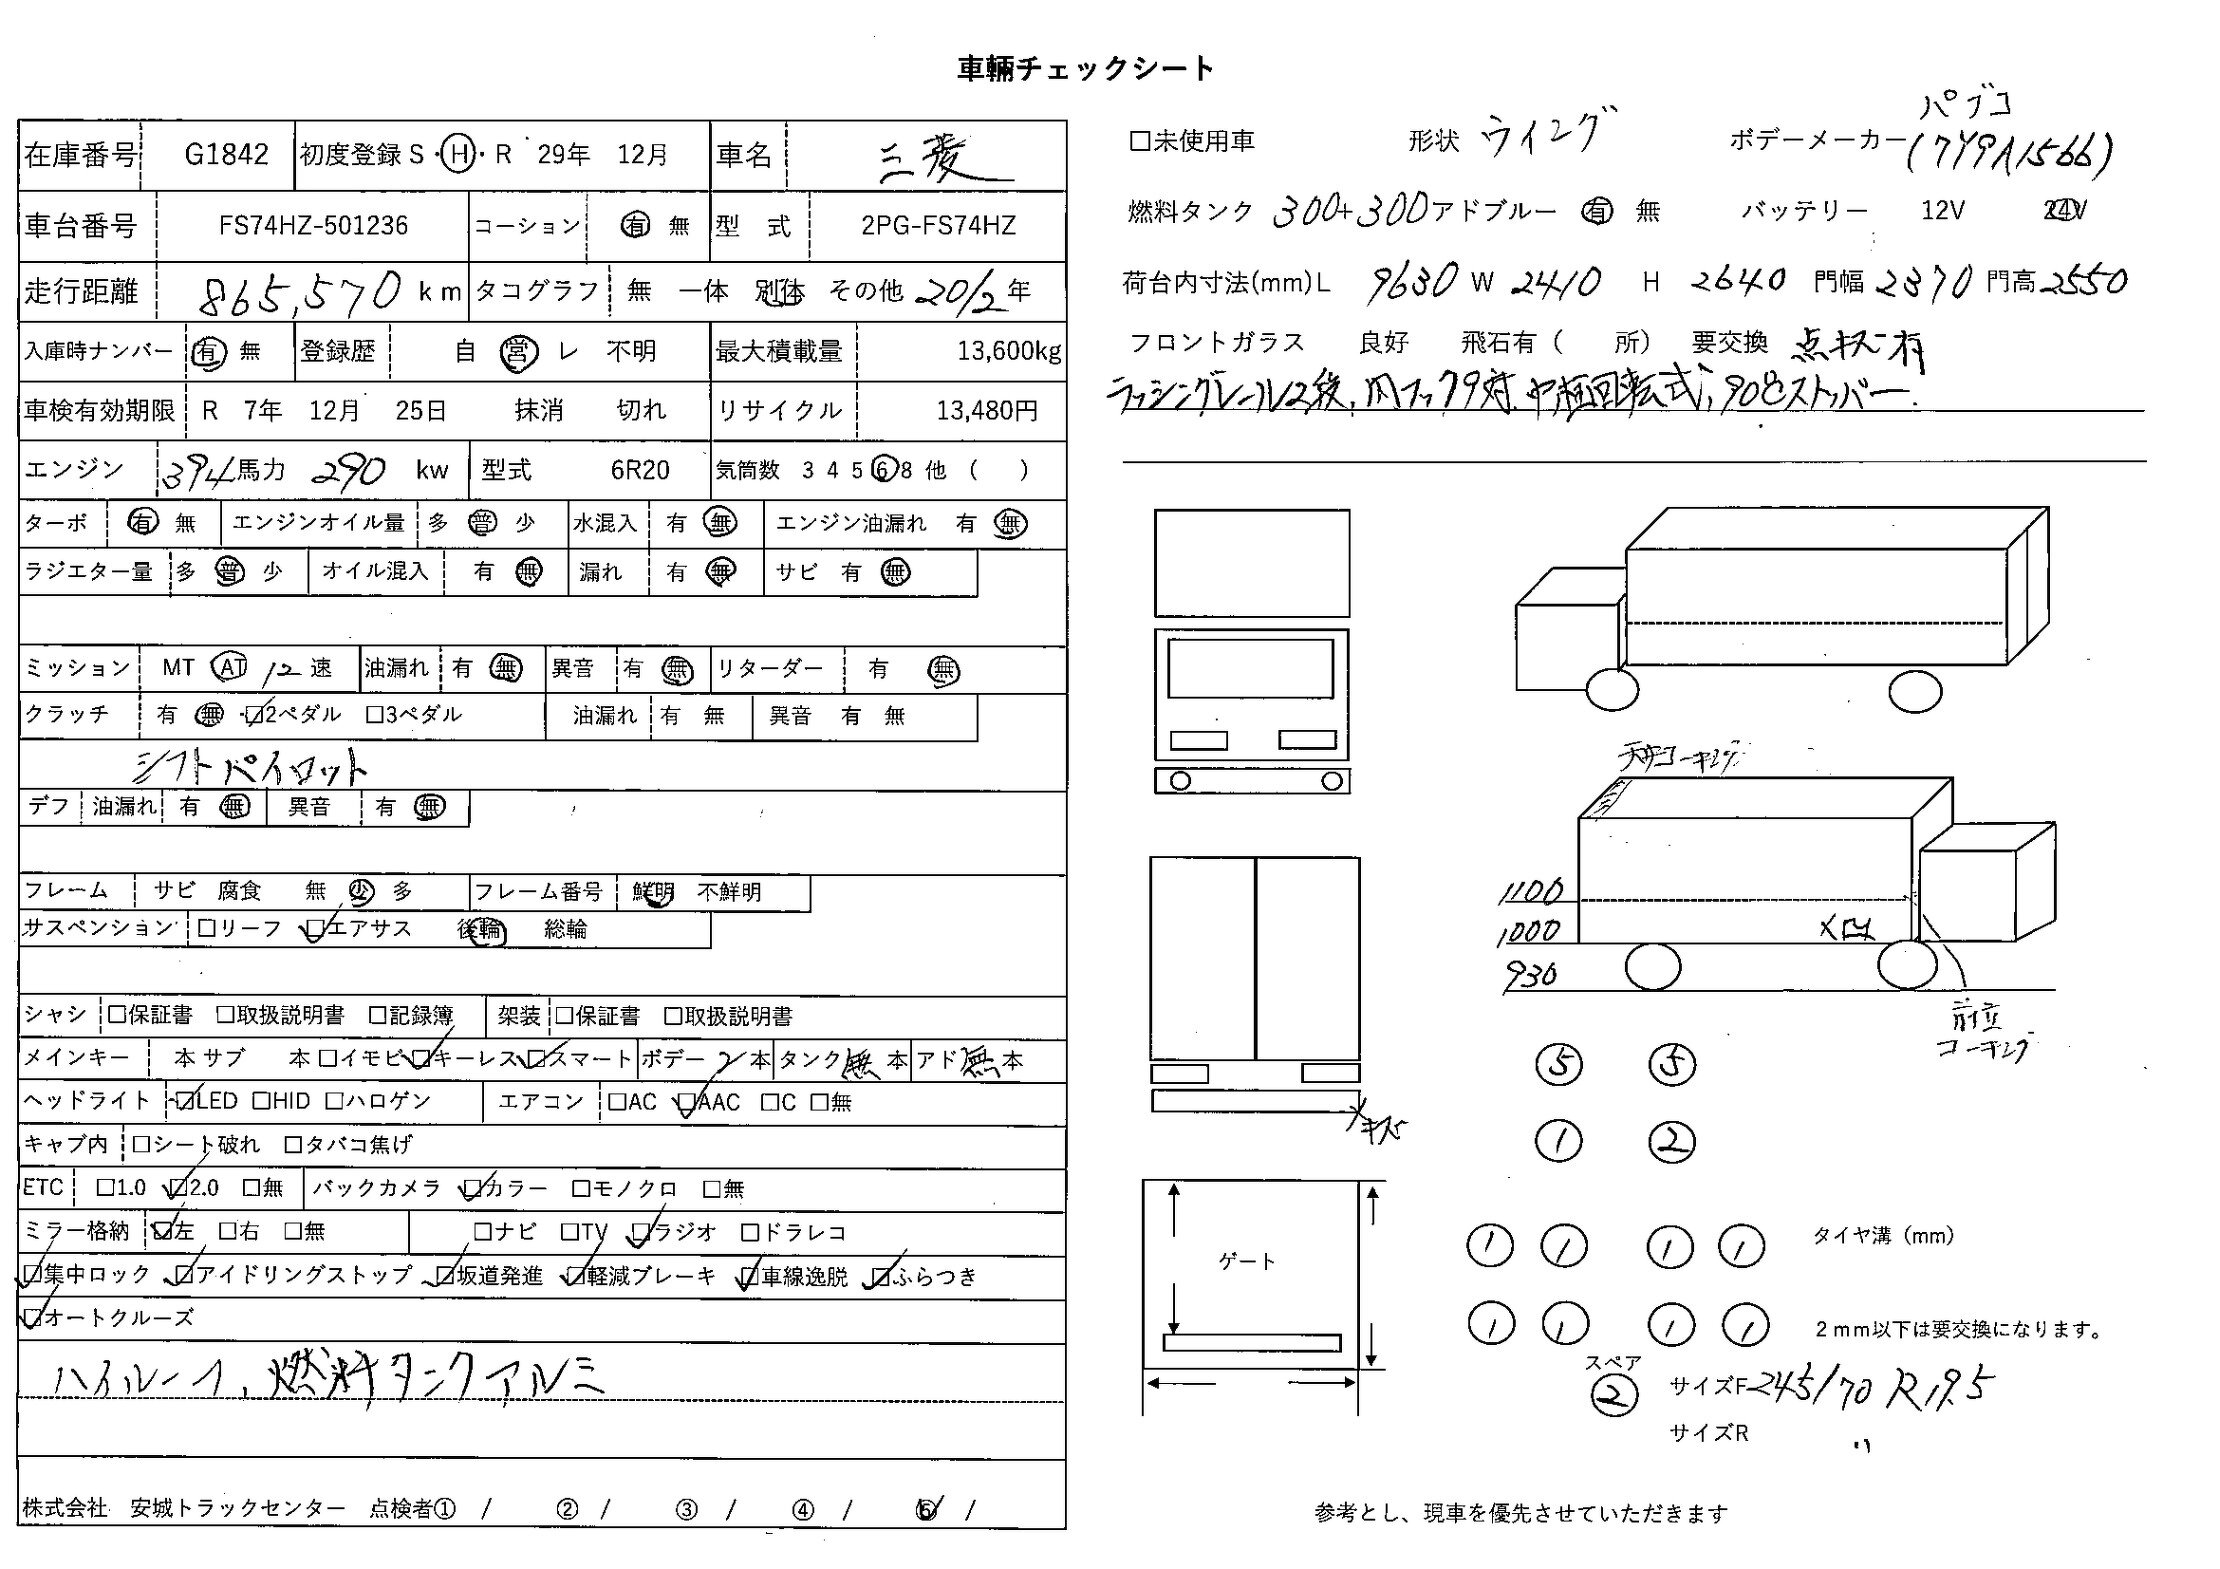 車輌チェックシート
在庫番号 G1842 初度登録 S・H・R 29年 12月 車名 三菱
車台番号 FS74HZ-501236 コーション 有 無 型 式 2PG-FS74HZ
走行距離 865,570 km タコグラフ 無 一体 別体 その他 20/2年
入庫時ナンバー 有 無 登録歴 自 営 レ 不明 最大積載量 13,600kg
車検有効期限 R 7年 12月 25日 抹消 切れ リサイクル 13,480円
エンジン 394馬力 290 kw 型式 6R20 気筒数 3 4 5 6 8 他 ( )
ターボ 有 無 エンジンオイル量 多 普 少 水混入 有 無 エンジン油漏れ 有 無
ラジエター量 多 普 少 オイル混入 有 無 漏れ 有 無 サビ 有 無
ミッション MT AT 12速 油漏れ 有 無 異音 有 無 リターダー 有 無
クラッチ 有 無 ☑2ペダル □3ペダル 油漏れ 有 無 異音 有 無
シフトパイロット
デフ 油漏れ 有 無 異音 有 無
フレーム サビ 腐食 無 少 多 フレーム番号 鮮明 不鮮明
サスペンション □リーフ ☑エアサス 後輪 総輪
シャシ □保証書 □取扱説明書 □記録簿 架装 □保証書 □取扱説明書
メインキー 本 サブ 本 □イモビ ☑キーレス ☑スマート ボデー 2本 タンク無本 アド無本
ヘッドライト ☑LED □HID □ハロゲン エアコン □AC ☑AAC □C □無
キャブ内 □シート破れ □タバコ焦げ
ETC □1.0 ☑2.0 □無 バックカメラ ☑カラー □モノクロ □無
ミラー格納 ☑左 □右 □無 □ナビ □TV ☑ラジオ □ドラレコ
☑集中ロック ☑アイドリングストップ ☑坂道発進 ☑軽減ブレーキ ☑車線逸脱 ☑ふらつき
☑オートクルーズ
ハイルーフ、燃料タンクアルミ
株式会社 安城トラックセンター 点検者① / ② / ③ / ④ / ⑤ /
パブコ
□未使用車 形状 ウイング ボデーメーカー(7Y9A1566)
燃料タンク 300+300 アドブルー 有 無 バッテリー 12V 24V
荷台内寸法(mm)L 9630 W 2410 H 2640 門幅 2370 門高 2550
フロントガラス 良好 飛石有 ( 所) 要交換 点キズ有
ラッシングレール2段、内フック9対、中柱回転式、90°ストッパー.
天井コーキング
1100
1000
930
メロ
前立
コーキング
キズ
⑤ ⑤
① ②
ゲート
① ① ① ① タイヤ溝 (mm)
① ① ① ① 2mm以下は要交換になります。
スペア
② サイズF 245/70 R19.5
サイズR 〃
参考とし、現車を優先させていただきます